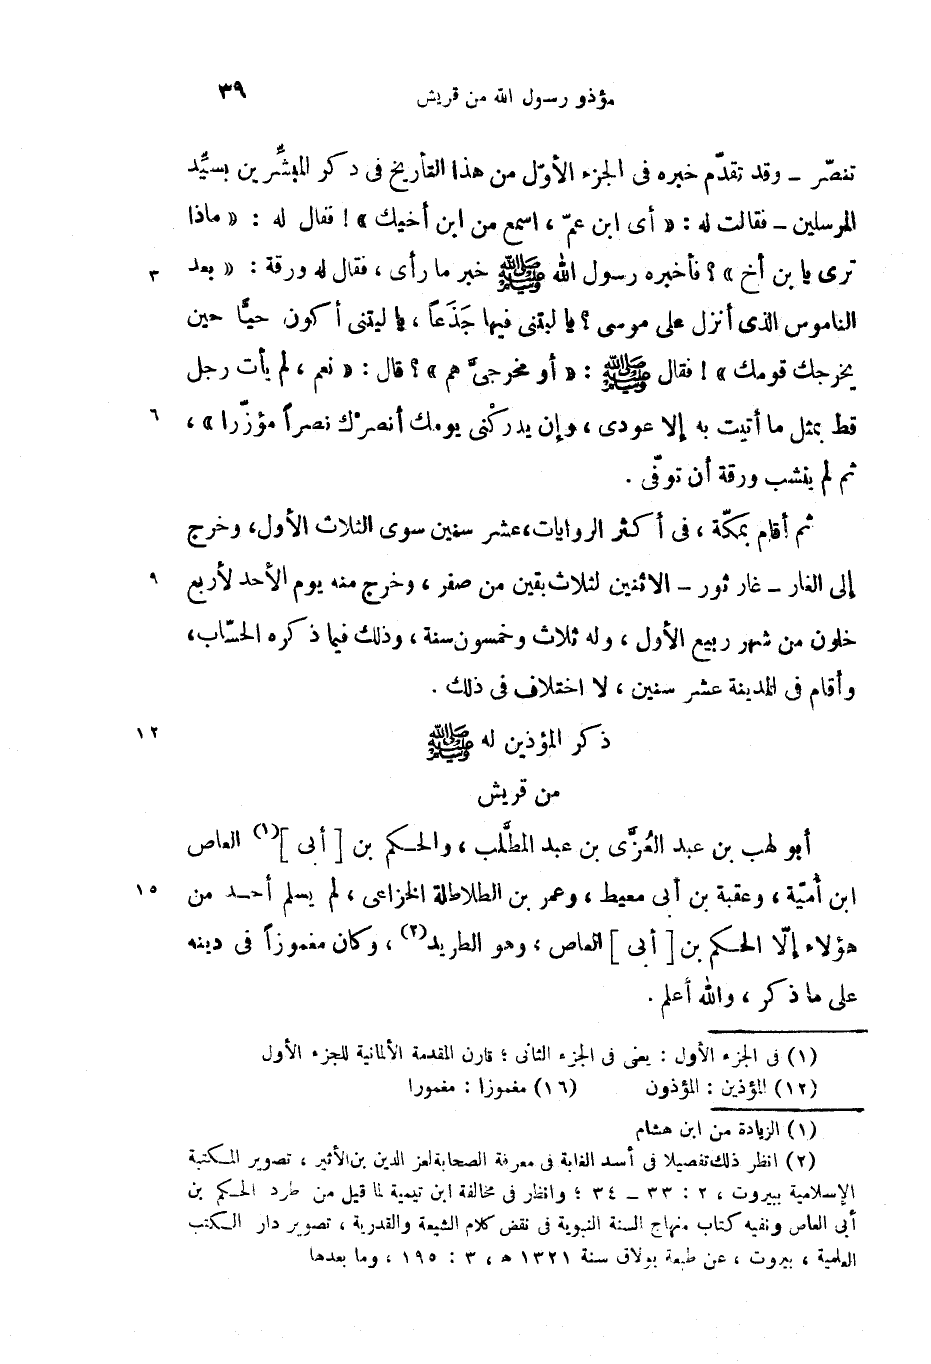 مؤذو رسول الله من قريش ٣٩
تنصّر ــ وقد تقدّم خبره فى الجزء الأوّل من هذا التأريخ فى ذكر المبشّرين بسيّد
المرسلين ــ فقالت له : « أى ابن عمّ ، اسمع من ابن أخيك » ! فقال له : « ماذا
ترى يا بن أخ » ؟ فأخبره رسول الله ﷺ خبر ما رأى ، فقال له ورقة : « بعد ٣
الناموس الذى أنزل على موسى ؟ يا ليتنى فيها جَذَعاً ، يا ليتنى أكون حيًّا حين
يخرجك قومك » ! فقال ﷺ : « أو مخرجىّ هم » ؟ قال : « نعم ، لم يأت رجل
قط بمثل ما أتيت به إلا عودى ، وإن يدركْنى يومك أنصرْك نصراً مؤزّرا » ، ٦
ثم لم ينشب ورقة أن توفّى .
ثم أقام بمكّة ، فى أكثر الروايات، عشر سنين سوى الثلاث الأول، وخرج
إلى الغار ــ غار ثور ــ الاثنين لثلاث بقين من صفر ، وخرج منه يوم الأحد لأربع ٩
خلون من شهر ربيع الأول ، وله ثلاث وخمسون سنة ، وذلك فيما ذكره الحسّاب،
وأقام فى المدينة عشر سنين ، لا اختلاف فى ذلك .
ذكر المؤذين له ﷺ ١٢
من قريش
أبو لهب بن عبد العُزَّى بن عبد المطَّلب ، والحكم بن [ أبى ](١) العاص
ابن أُميّة ، وعقبة بن أبى معيط ، وعمر بن الطلاطلة الخزاعى ، لم يسلم أحد من ١٥
هؤلاء إلّا الحكم بن [ أبى ] العاص ، وهو الطريد(٢) ، وكان مغموزاً فى دينه
على ما ذكر ، والله أعلم .
(١) فى الجزء الأول : يعنى فى الجزء الثانى ؛ قارن المقدمة الألمانية للجزء الأول
(١٢) المؤذين : المؤذون (١٦) مغموزا : مغمورا
(١) الزيادة من ابن هشام
(٢) انظر ذلك تفصيلا فى أسد الغابة فى معرفة الصحابة لعز الدين بن الأثير ، تصوير المكتبة
الإسلامية ببيروت ، ٢ : ٣٣ ــ ٣٤ ؛ وانظر فى مخالفة ابن تيمية لما قيل من طرد الحكم بن
أبى العاص ونفيه كتاب منهاج السنة النبوية فى نقض كلام الشيعة والقدرية ، تصوير دار الكتب
العلمية ، بيروت ، عن طبعة بولاق سنة ١٣٢١ ه ، ٣ : ١٩٥ ، وما بعدها